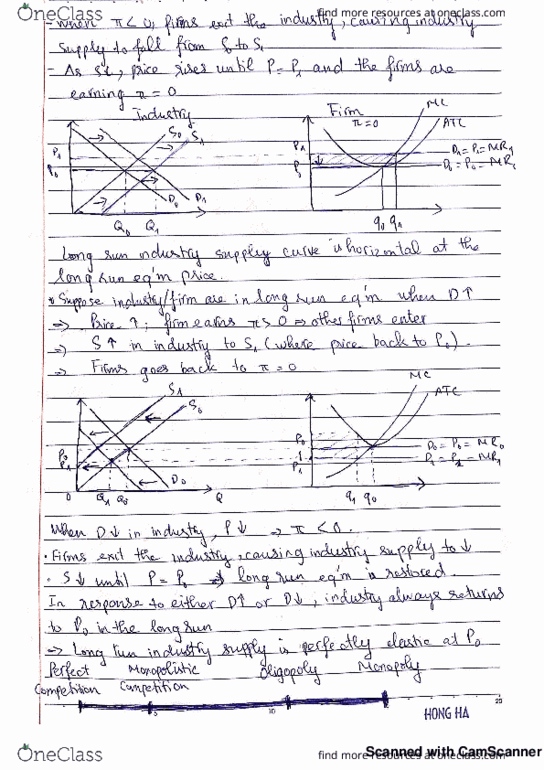 OneClass
find more resources at oneclass.com
- When π < 0, firms exit the industry, causing industry
supply to fall from S₀ to S₁
- As S↓, price rises until P = P₁ and the firms are
earning π = 0
Industry
Firm
π = 0
MC
ATC
S₀
S₁
P₁
P₀
D₀
D₁
Q₀ Q₁
P₁
D₁ = P₁ = MR₁
D₀ = P₀ = MR₀
q₀ q₁
Long run industry supply curve is horizontal at the
long run eq'm price.
* Suppose industry/firm are in long run eq'm when D↑
⇒ Price ↑; firm earns π > 0 ⇒ other firms enter
⇒ S↑ in industry to S₁ (where price back to P₀).
⇒ Firms goes back to π = 0
S₁
S₀
MC
ATC
P₀
P₁
D₀
0
Q₁ Q₀
Q
P₀
P₁
D₀ = P₀ = MR₀
q₁ q₀
When D↓ in industry, P↓ → π < 0.
· Firms exit the industry, causing industry supply to ↓
· S↓ until P = P₀ ⇒ long run eq'm is restored.
In response to either D↑ or D↓, industry always returns
to P₀ in the long run
→ Long run industry supply is perfectly elastic at P₀
Perfect Monopolistic Oligopoly Monopoly
Competition Competition
HONG HA
Scanned with CamScanner
OneClass
find more resources at oneclass.com